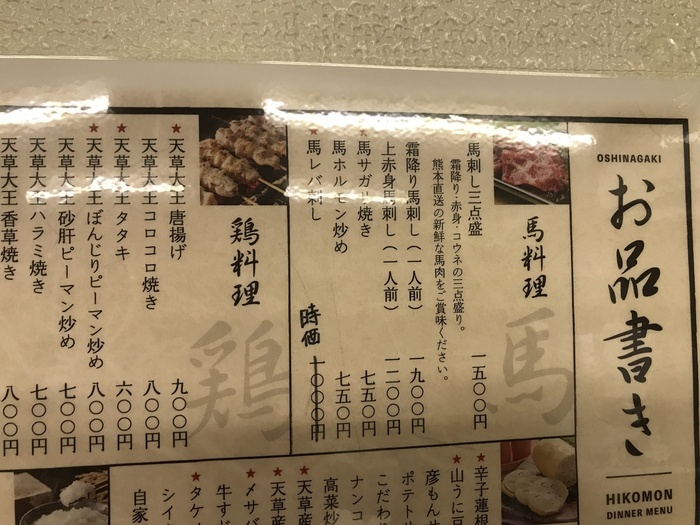 OSHINAGAKI
お品書き
HIKOMON
DINNER MENU
馬料理
馬
馬刺し三点盛 一五〇〇円
霜降り・赤身・コウネの三点盛り。
熊本直送の新鮮な馬肉をご賞味ください。
霜降り馬刺し(一人前) 一九〇〇円
上赤身馬刺し(一人前) 一二〇〇円
★馬サガリ焼き 七五〇円
馬ホルモン炒め 七五〇円
★馬レバ刺し 時価 一〇〇〇円
鶏料理
鶏
★天草大王唐揚げ 九〇〇円
天草大王コロコロ焼き 八〇〇円
★天草大王タタキ 六〇〇円
★天草大王ぼんじりピーマン炒め 八〇〇円
天草大王砂肝ピーマン炒め 七〇〇円
天草大王ハラミ焼き 七〇〇円
天草大王香草焼き 八〇〇円
★辛子蓮根
★山うに豆
彦もん サ
ポテトサ
こだわり
ナンコ
高菜炒
★天草産
★天草産
★メサバ
牛すじ
★タケノ
シイ
自家